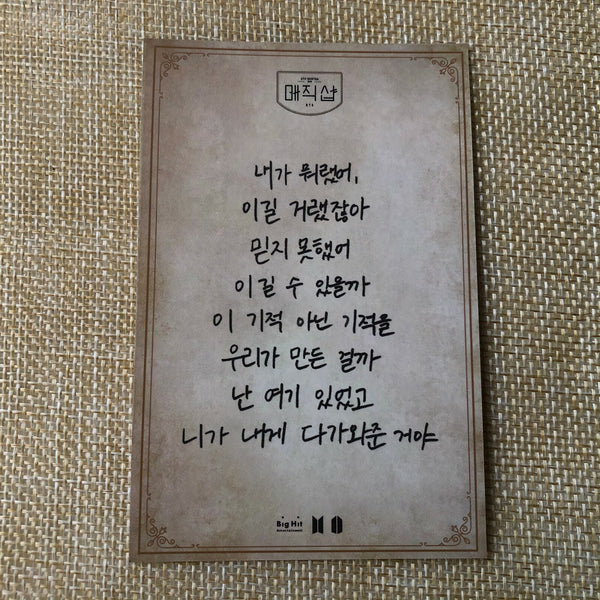 매직샵
BTS
내가 뭐랬어,
이길 거랬잖아
믿지 못했어
이길 수 있을까
이 기적 아닌 기적을
우리가 만든 걸까
난 여기 있었고
니가 내게 다가와준 거야
Big Hit
Entertainment